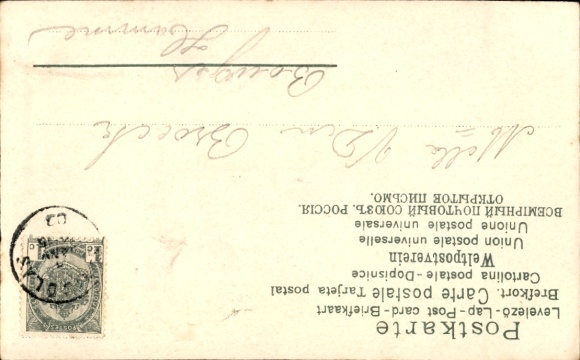 Postkarte
Levelező-Lap-Post card-Briefkaart
Brefkort. Carte postale Tarjeta postal
Cartolina postale-Dopisnice
Weltpostverein
Union postale universelle
Unione postale universale
ВСЕМІРНЫЙ ПОЧТОВЫЙ СОЮЗЪ. РОССІЯ.
ОТКРЫТОЕ ПИСЬМО.
Melle V Den Broeck
Hamme